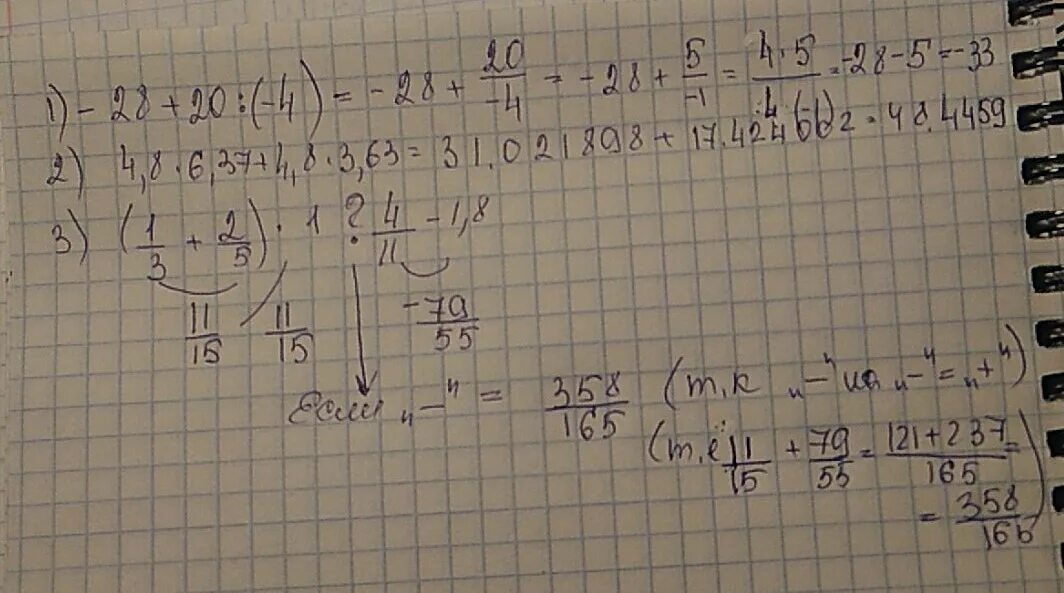 1) - 28 + 20 : (-4) = - 28 + 20/-4 = - 28 + 5/-1 = 4·5/-4(-1) = -28 - 5 = -33
2) 4,8 · 6,37 + 4,8 · 3,63 = 31.021898 + 17.424 = 48.4459
3) (1/3 + 2/5) · 1 ? 4/11 - 1,8
11/15 11/15 -79/55
Если "-" = 358/165 (т.к "-" на "-" = "+")
(т.е 11/15 + 79/55 = 121+237/165 =
= 358/165)